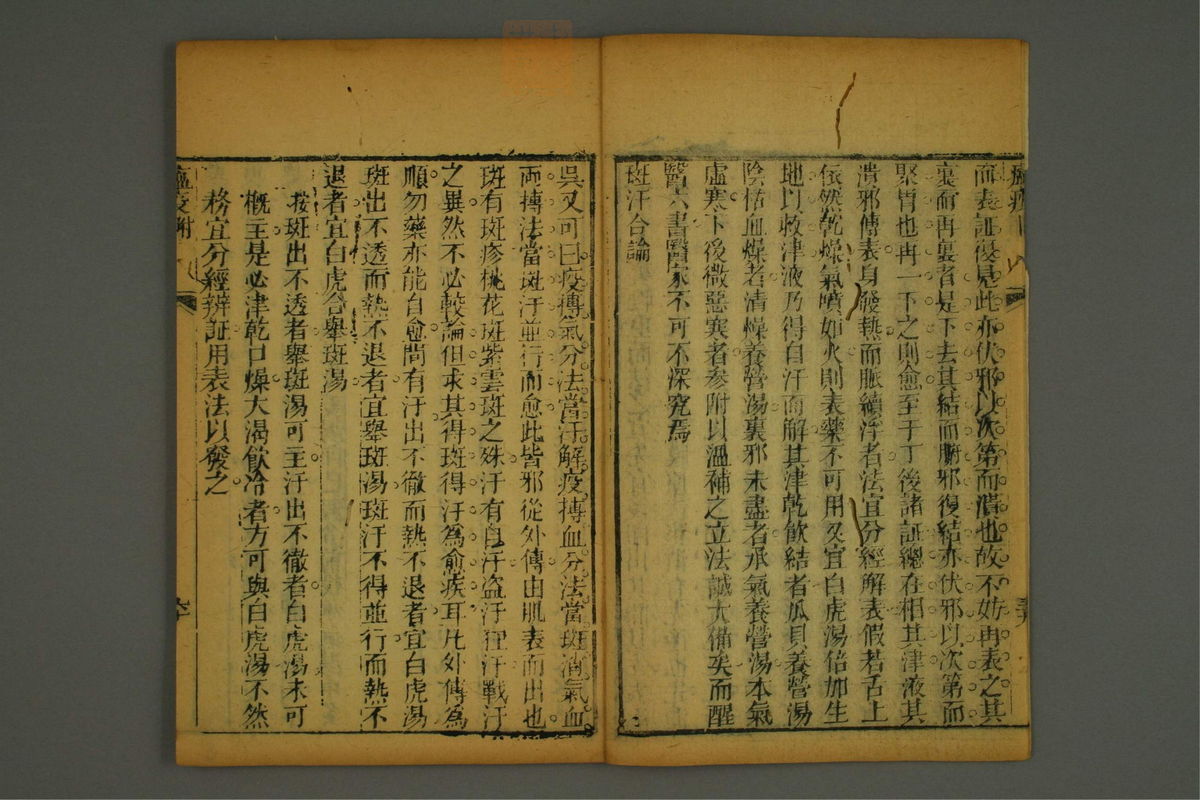 而表証復見此亦伏邪以次第而潰也故不妨再表之其
裏而再裏者是下去其結而腑邪復結亦伏邪以次第而
聚胃也再一下之則愈至于丁後諸証總在相其津液其
潰邪傳表身發熱而脈續浮者法宜分經解表假若舌上
依然乾燥氣噴如火則表藥不可用又宜白虎湯倍加生
地以救津液乃得自汗而解其津乾飲結者瓜貝養營湯
陰枯血燥者清燥養營湯裏邪未盡者承氣養營湯本氣
虛寒下後微惡寒者參附以溫補之立法誠大備矣而醒
醫六書醫家不可不深究焉
斑汗合論
吳又可曰疫摶氣分法當汗解疫摶血分法當斑消氣血
兩摶法當斑汗並行而愈此皆邪從外傳由肌表而出也
斑有斑疹桃花斑紫雲斑之殊汗有自汗盜汗狂汗戰汗
之異然不必較論但求其得斑得汗為愈疾耳凡外傳為
順勿藥亦能自愈間有汗出不徹而熱不退者宜白虎湯
斑出不透而熱不退者宜舉斑湯斑汗不得並行而熱不
退者宜白虎合舉斑湯
按斑出不透者舉斑湯可主汗出不徹者白虎湯未可
槪主是必津乾口燥大渴飲冷者方可與白虎湯不然
務宜分經辨証用表法以發之
瘟疫附